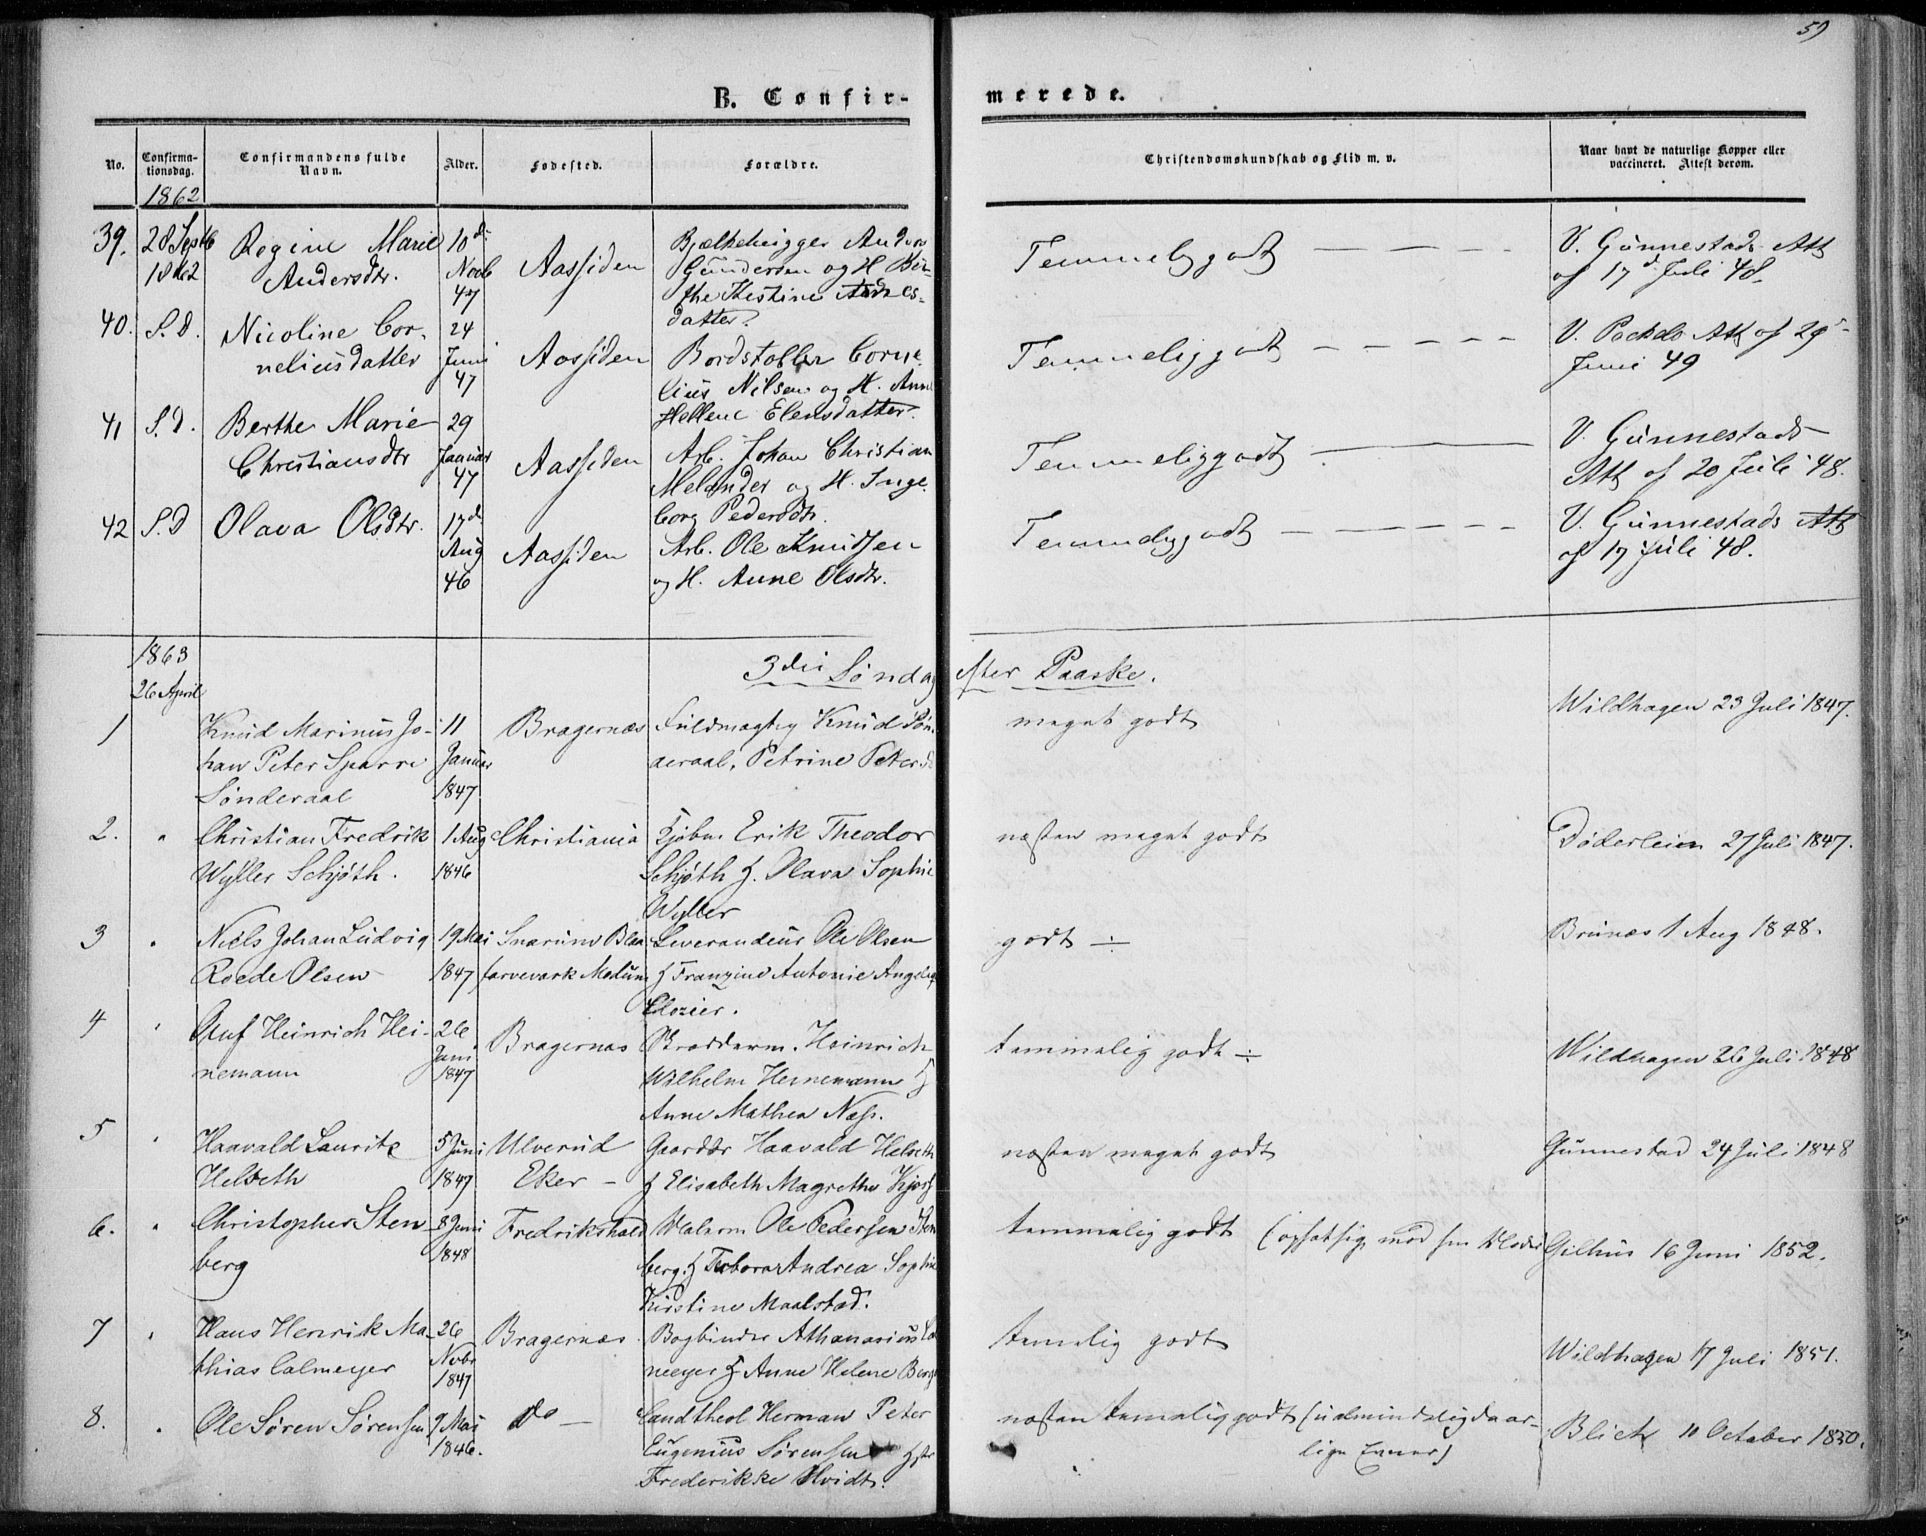 59
B. Confir-
merede.
No.
Confirma-
tionsdag.
Confirmandens fulde
Navn.
Alder.
Fødested.
Forældre.
Christendomskundskab og Flid m. v.
Naar havt de naturlige Kopper eller
vaccineret. Attest derom.
1862
39. 28 Septb 1862
Regine Marie
Andersdtr.
10d
Novb
47
Aassiden
Bjælkehugger Anders
Gundersen og H. Ber-
the Kestine Andres-
datter.
Temmeliggodt — — — —
V. Gunnestads Att
af 17d Juli 48.
40. S. D.
Nicoline Cor-
neliusdatter
24
Juni
47
Aassiden
Bordstabler Corne-
lius Nilsen og H. Anne
Hellene Elensdatter.
Temmeliggodt — — — — —
Att af 29
Juni 49
41 S. D.
Berthe Marie
Christiansdtr
29
Januar
47
Aassiden
Arb. Johan Christian
Melander og H. Inge-
borg Pedersdtr.
Temmeliggodt —
V. Gunnestads
Att af 20 Juli 48.
42 S. D
Olava Olsdtr.
17d
Aug
46
Aassiden
Arb. Ole Knudsen
og H. Anne Olsdtr.
Temmeliggodt — — — — —
V. Gunnestads Att
af 17 Juli 48.
1863
26 April
3die Søndag efter Paaske.
1
Knud Marinus Jo-
han Peter Sparre
Sønderaal
11
Januar
1847
Bragernæs
Fuldmægtig Knud Søn-
deraal, Petrine Petersd
meget godt
Wildhagen 23 Juli 1847.
2. "
Christian Fredrik
Wyller Schjøth.
1 Aug
1846
Christiania
Kjøbm Erik Theodor
Schjøth H. Olava Sophie
Wyller
næsten meget godt
Døderlein 27 Juli 1847.
3 "
Niels Johan Ludvig
Roede Olsen
19 Mai
1847
Snarum Blaa-
farveværk Modum
Leverandeur Ole Olsen
H Franzine Antonie
godt ÷
Brunæs 1 Aug 1848.
4 "
Oluf Heinrich Hei-
nemann
26
Juni
1847
Bragernæs
Heinrich
Wilhelm Heinemann H
Anne Mathea Næss.
temmelig godt ÷
Wildhagen 26 Juli 1848
5 "
Haavald Lauritz
Helseth
5 Juni
1847
Ulverud
Eker —
Gaardbr Haavald Helseth
H Elisabeth Magrethe
næsten meget godt
Gunnestad 24 Juli 1848
6. "
Christopher Sten
berg
8 Juni
1848
Fredrikshald
Malerm Ole Pedersen Sten
berg. H Andrea Sophie
Kirstine Maalstad.
temmelig godt (opsætsig mod sin Moder
Gilhus 16 Juni 1852.
7 "
Hans Henrik Ma-
thias Calmeyer
26
Nvbr
1847
Bragernæs.
Bogbinder Athanasius Cal-
meyer H Anne Helene
temelig godt
Wildhagen 17 Juli 1851.
8. "
Ole Søren Sørensen
7 Mai
1846.
do —
Candtheol Herman Peter
Eugenius Sørensen
Frederikke Hvidt.
næsten temelig godt (ualmindelig daar-
lige Evner)
Blich 10 October 1850.